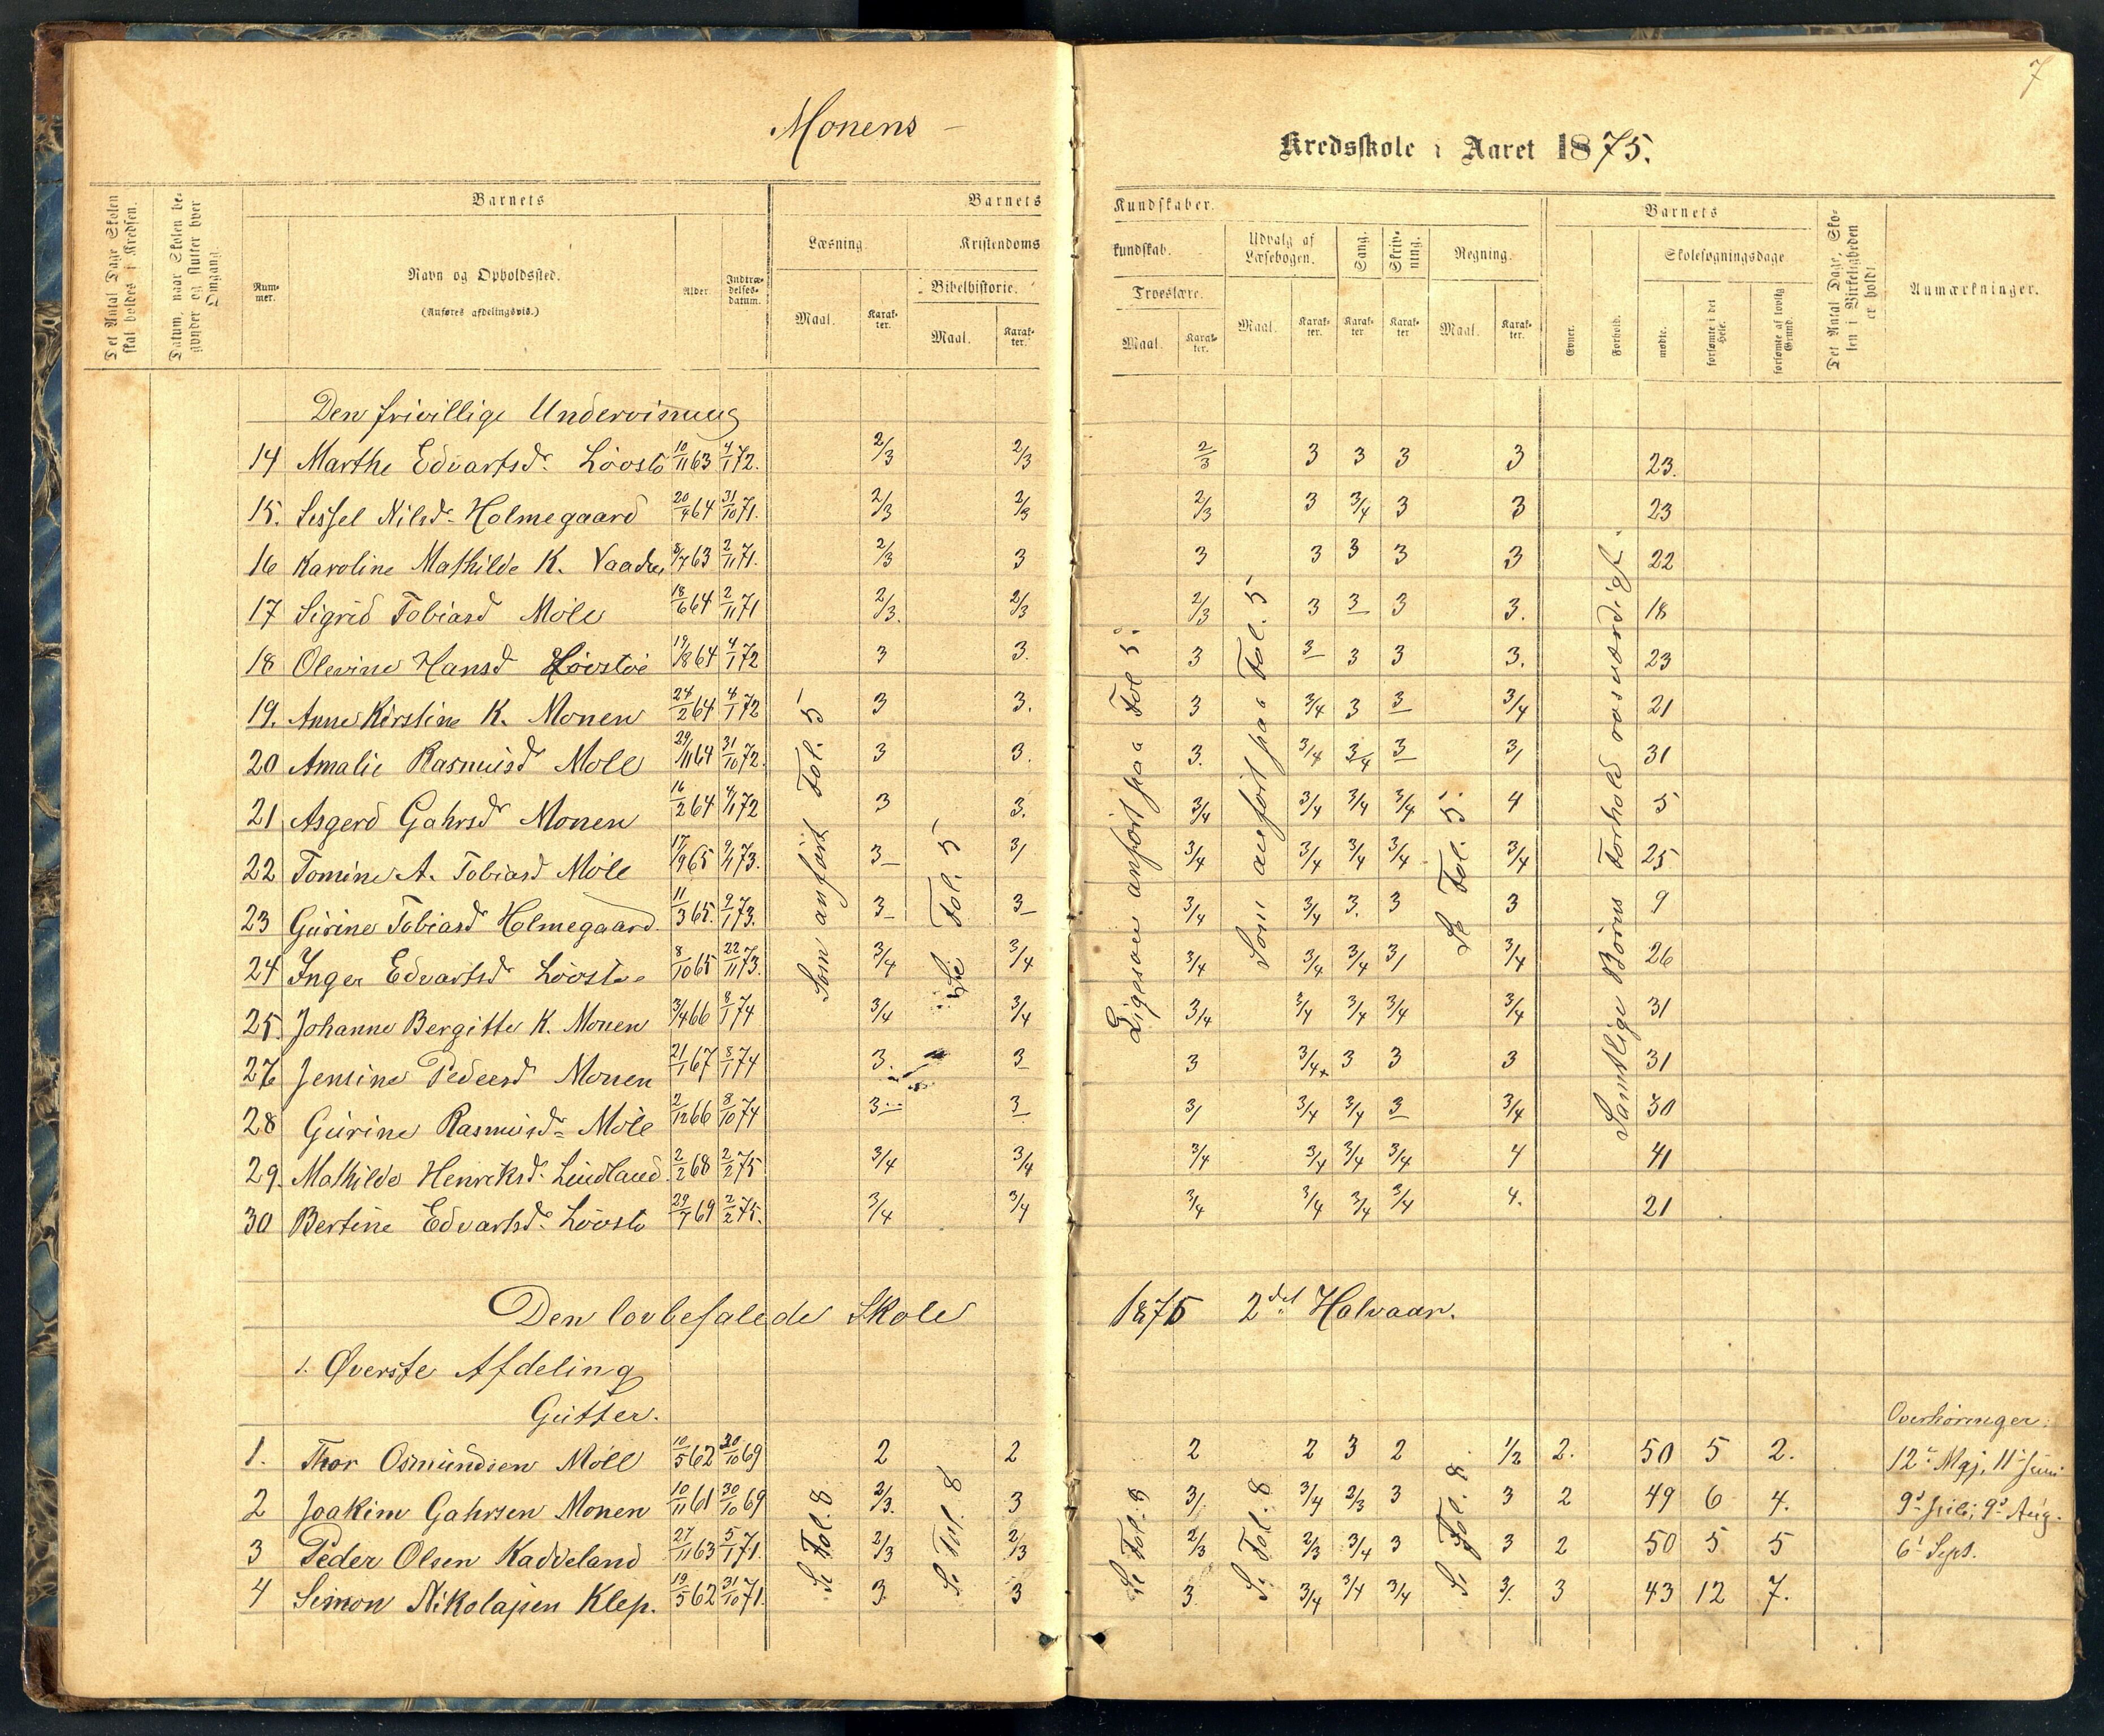 7
Monens –
Kredsskole i Aaret 1875.
Det Antal Dage Skolen skal holdes i Kredsen.
Datum, naar Skolen begynder og slutter hver Omgang.
Barnets
Num-mer.
Navn og Opholdssted.
(Anføres afdelingsvis.)
Alder.
Indtræ-delses-datum.
Barnets Kundskaber.
Læsning.
Maal.
Karak-ter.
Kristendomskundskab.
Bibelhistorie.
Maal.
Karak-ter.
Troeslære.
Maal.
Karak-ter.
Udvalg af Læsebogen.
Maal.
Karak-ter.
Sang.
Karak-ter
Skriv-ning.
Karak-ter
Regning.
Maal.
Karak-ter.
Barnets
Evner.
Forhold.
Skolesøgningsdage
mødte.
forsømte i det Hele.
forsømte af lovlig Grund.
Det Antal Dage, Skolen i Virkeligheden er holdt
Anmærkninger.
Den frivillige Undervisning
14 Marthe Edvartsdr. Lövstö 10/11 63 4/1 72. 2/3 2/3 2/3 3 3 3 3 23.
15. Sissel Nilsdr. Holmegaard 20/4 64 31/10 71. 2/3 2/3 2/3 3 3/4 3 3 23
16 Karoline Mathilde K. 8/7 63 2/11 71. 2/3 3 3 3 3 3 3 22
17 Sigrid Tobiasd Möll 18/6 64 2/11 71 2/3. 2/3 2/3 3 3 3 3. 18
18 Olevine Hansd Lövstöe 19/8 64 4/1 72 3 3. 3 3 3 3 3. 23
19. Anne Kirstine K. Monen 24/2 64 4/1 72 3 3. 3 3/4 3 3 3/4 21
20 Amalie Rasmusdr Moll 29/11 64 31/10 72. 3 3. 3. 3/4 3/4 3 3/ 31
21 Asgerd Gahrsdr Monen 16/2 64 4/1 72 3 3. 3/4 3/4 3/4 3/4 4 5
22 Tomine A. Tobiasd Möll 17/9 65 9/1 73. 3 3/ 3/4 3/4 3/4 3/4 3/4 25
23 Gurine Tobiasd Holmegaard. 11/3 65. 9/1 73. 3 3 3/4 3/4 3. 3 3 9
24 Inger Edvartsd Lövstö 8/10 65 22/11 73. 3/4 3/4 3/4 3/4 3/4 3/ 3/4 26
25. Johanne Bergitte K. Monen 3/4 66 8/1 74 3/4 3/4 3/4 3/4 3/4 3/4 3/4 31
27 Jensine Pedersd Monen 21/1 67 8/1 74 3. 3 3 3/4 3 3 3 31
28 Gurine Rasmusdr. Möll 2/12 66 8/10 74 3 3 3/ 3/4 3/4 3 3/4 30
29. Mathilde Henriksd. Lindland. 2/2 68 2/2 75 3/4 3/4 3/4 3/4 3/4 3/4 4 41
30 Bertine Edvartsdr. Lövstö 29/7 69 2/2 75. 3/4 3/4 3/4 3/4 3/4 3/4 4. 21
Som anfört Fol. 5
Se Fol. 5
Ligesom anfört paa Fol 5.
Som anfört paa Fol. 5
Se Fol. 5
Samtlige Börns Forhold rosværdigt.
Den lovbefalede Skole 1875 2det Halvaar.
1. Øverste Afdeling
Gutter.
Overhöringer.
1. Thor Osmundsen Möll 10/5 62 30/10 69 2 2 2 2 3 2 1/2 2. 50 5 2. 12te Maj, 11te Juni
2 Joakim Gahrsen Monen 10/11 61 30/10 69 2/3. 3 3/ 3/4 2/3 3 3 2 49 6 4. 9de Juli; 9de Aug.
3 Peder Olsen Kaddeland 27/11 63 5/1 71. 2/3 2/3 2/3 2/3 3/4 3 3 2 50 5 5 6te Sept.
4 Simon Nikolajsen Klep. 19/5 62 31/10 71. 3. 3 3. 3/4 3/4 3/4 3/. 3 43 12 7.
Se Fol. 8
Se Fol. 8
Se Fol. 8
Se Fol. 8
Se Fol. 8